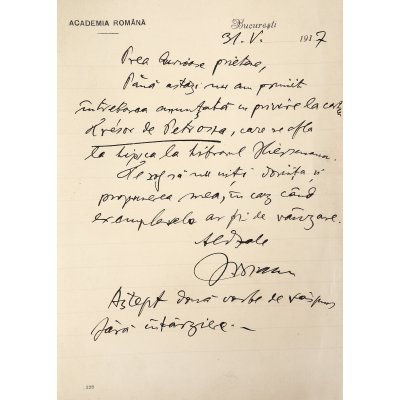 ACADEMIA ROMÂNĂ
București
31. V. 1937
Prea
prietene,
Până astăzi nu am primit
cu privire la cartea
Trésor de Petrossa, care se afla
la Lipsca la librarul Hiersemann.
Te rog să nu uiți dorința și
propunerea mea, în caz când
exemplarele ar fi de vânzare.
Al Dtale
Aștept două vorbe de răspuns
fără întârziere.